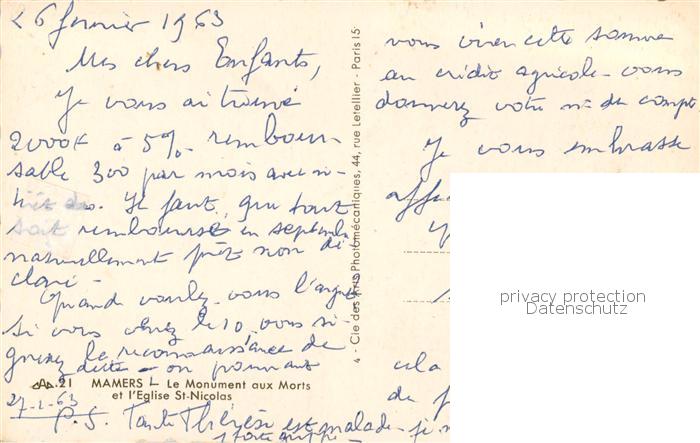 26 février 1963
Mes chers Enfants,
Je vous ai trouvé
2000F à 5% rembour-
sable 300 par mois avec in-
térêt Il faut que tout
soit remboursé en septembre
naturellement prêt non dé-
claré -
Quand voulez-vous l'argent
si vous venez le 10, vous si-
gnerez la reconnaissance de
dette - on pourrait
21 MAMERS Le Monument aux Morts
et l'Eglise St-Nicolas
27-2-63
P.S. Tante Thérèse est malade - 
forte grippe -
4 - Cie des Arts Photomécaniques, 44, rue Letellier - Paris 15
vous virer cette somme
au crédit agricole - vous
donnerez votre n° de compte
Je vous embrasse
affec
cela
de
privacy protection
Datenschutz